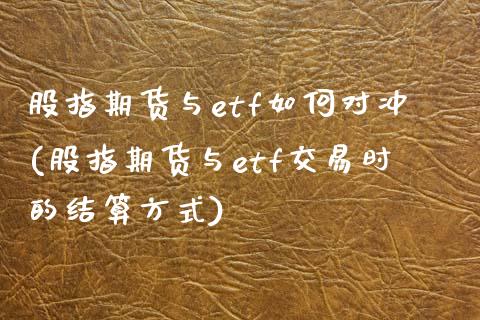 股指期货与etf如何对冲
(股指期货与etf交易时
的结算方式)